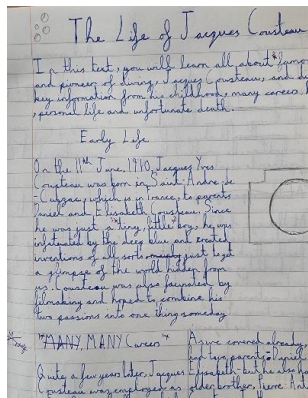 The Life of Jacques Cousteau
In this text, you will learn all about famo
and pioneer of diving, Jacques Cousteau, and du
key information from his childhood, many careers, h
personal life and unfortunate death.
Early Life
On the 11th June, 1910, Jacques Yves
Cousteau was born in Saint Andre de
Cubzac, which is in France, to parents
Daniel and Elisabeth Cousteau. Since
he was just a "tiny, little" boy, he was
infatuated by the deep blue and created
inventions of all sorts just to get
a glimpse of the world hidden from
us. Cousteau was also fascinated by
filmaking and hoped to combine his
two passions into one thing someday
"MANY, MANY Careers"
Quite a few years later, Jacques
Cousteau was employed as
As we covered already,
parents - Daniel
Elisabeth - but he also ha
older brother, Pierre Ant